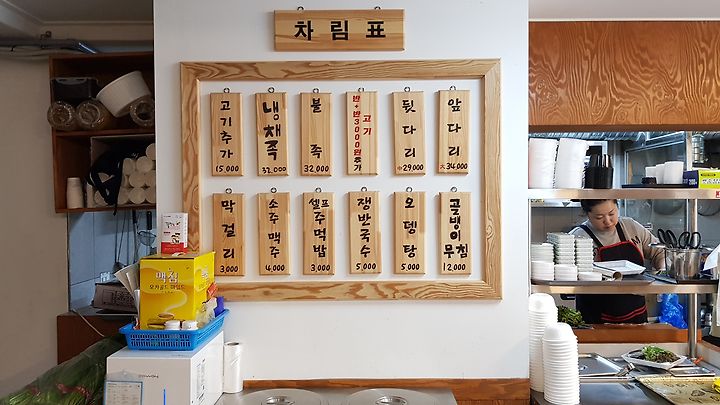 차림표
고기추가
15,000
냉채족
32,000
불족
32,000
반+반3000원추가
고기
뒷다리
中29,000
앞다리
大34,000
막걸리
3,000
소주맥주
4,000
셀프주먹밥
3,000
쟁반국수
5,000
오뎅탕
5,000
골뱅이무침
12,000
맥심
모카골드 마일드